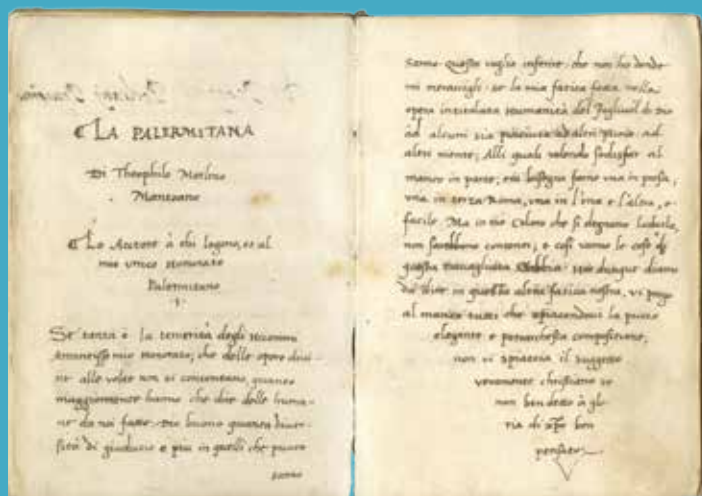 LA PALERMITANA
Di Theophilo
Mantoano
Lo Autore à chi legono, et al
mio unico Honorato
Palermitano
1.
Se tanta è la temerità degli Huomini
mio Honorato, che delle opere divi-
ne alle volte non si contentano, quanto
maggiormente hanno che dire delle huma-
ne da noi fatte. Dio buono quanta diver-
sità di giudicio e più in quelli che puoco
sanno
sanno. Questo voglio inferire che non ho donde
mi meravigli se la mia fatica fatta nella
opera intitulata Humanità del Figliuol di Dio
ad alcuni sia piaciuta ad altri puoco ad
altri niente; Alli quali volendo sodisfar al
manco in parte, mi bisogna farne una in prosa,
una in terza Rima, una in l'una e l'altra, e
facile. Ma in ciò Coloro che si degnano laudarla,
non sarebbono contenti, e così vanno le cose di
questa travagliata Gabbia. Hor dunque
in questa altra fatica nostra, vi prego
al manco tutti che spiacendovi la puoco
elegante e petrarchesca compositione,
non vi spiaccia il suggetto
veramente christiano se
non ben detto à glo
ria di xpo ben
pensato